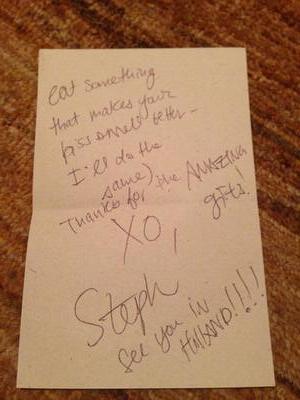 eat something
that makes your
piss smell better -
I'll do the
same)
Thanks for the AMAZING
gifts!
XO,
Steph
See you in
HOLLAND!!!!